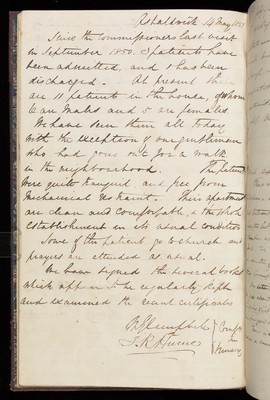 14 May 1851
Since the Commissioners last visit
in September 1850. patients have
been admitted, and has been
discharged. At present there
are 11 patients in the house, of whom
6 are Males and 5 are females.
We have seen them all today
with the exception of one gentleman
who had gone out for a walk
in the neighbourhood. The patients
were quite tranquil, and free from
Mechanical restraint. Their apartments
are clean and comfortable, & the whole
Establishment in its usual condition
Some of the patients go to church and
prayers are attended as usual.
We have signed the several books
which appear to be regularly kept
and examined the recent certificates